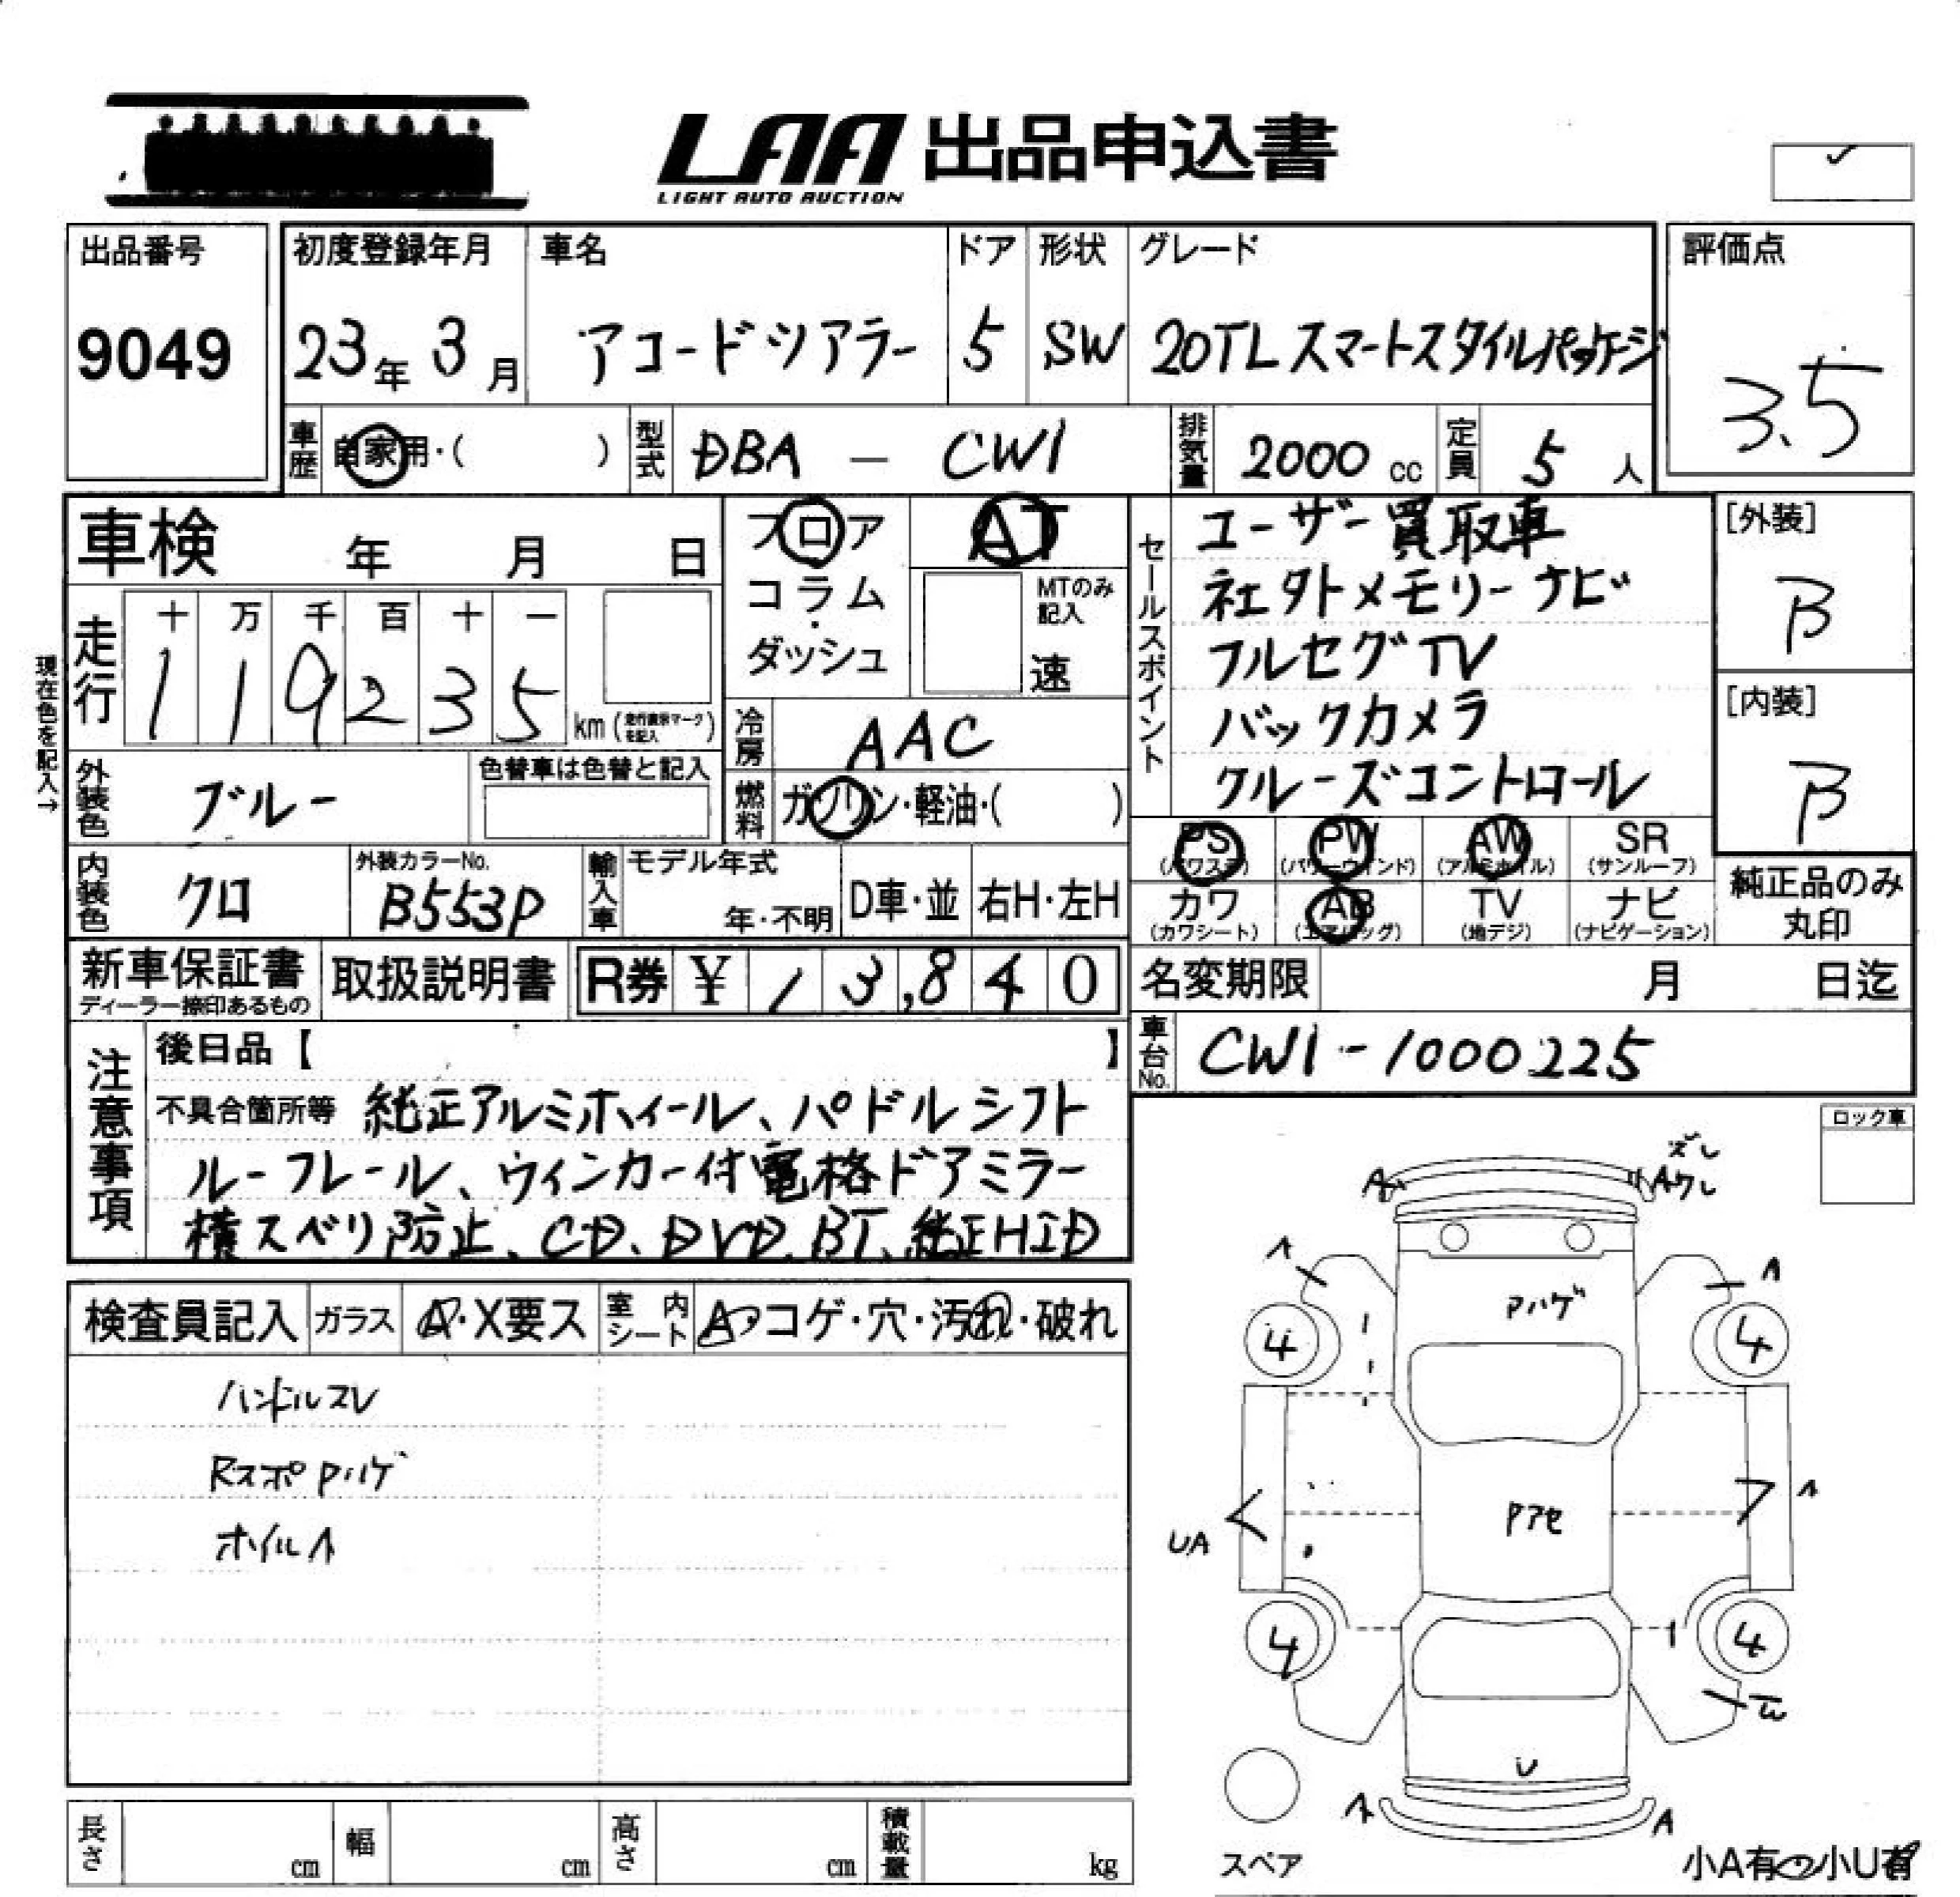 LAA 出品申込書
LIGHT AUTO AUCTION
出品番号
9049
初度登録年月
23年 3月
車名
アコードツアラー
ドア
5
形状
SW
グレード
20TLスマートスタイルパッケージ
評価点
3.5
車歴 自家用・( )
型式 DBA - CW1
排気量 2000 cc
定員 5 人
車検 年 月 日
走行 十 万 千 百 十 一
1 1 9 2 3 5 km (走行表示マークを記入)
現在色を記入→
フロア
コラム
・
ダッシュ
AT
MTのみ記入
速
冷房 AAC
燃料 ガソリン・軽油・( )
セールスポイント
ユーザー買取車
社外メモリーナビ
フルセグTV
バックカメラ
クルーズコントロール
[外装]
B
[内装]
B
外装色 ブルー
色替車は色替と記入
内装色 クロ
外装カラーNo.
B553P
輸入車 モデル年式
年・不明
D車・並
右H・左H
PS (パワステ)
PW (パワーウィンド)
AW (アルミホイル)
SR (サンルーフ)
カワ (カワシート)
AB (エアバッグ)
TV (地デジ)
ナビ (ナビゲーション)
純正品のみ
丸印
新車保証書
ディーラー捺印あるもの
取扱説明書
R券 ¥ 13,840
名変期限 月 日迄
車台No. CW1-1000225
注意事項
後日品【 】
不具合箇所等 純正アルミホイール、パドルシフト
ルーフレール、ウィンカー付電格ドアミラー
横スベリ防止、CD、DVD、BT、純正HID
ロック車
検査員記入
ガラス A・X要ス
室内シート A・コゲ・穴・汚れ・破れ
ハンドルスレ
RスポPハゲ
ホイルA
ズレ
A
Aワレ
A
A
Pハゲ
4
4
UA
Pアセ
A
4
4
W
U
A
A
スペア
小A有 小U有
長さ cm
幅 cm
高さ cm
積載量 kg